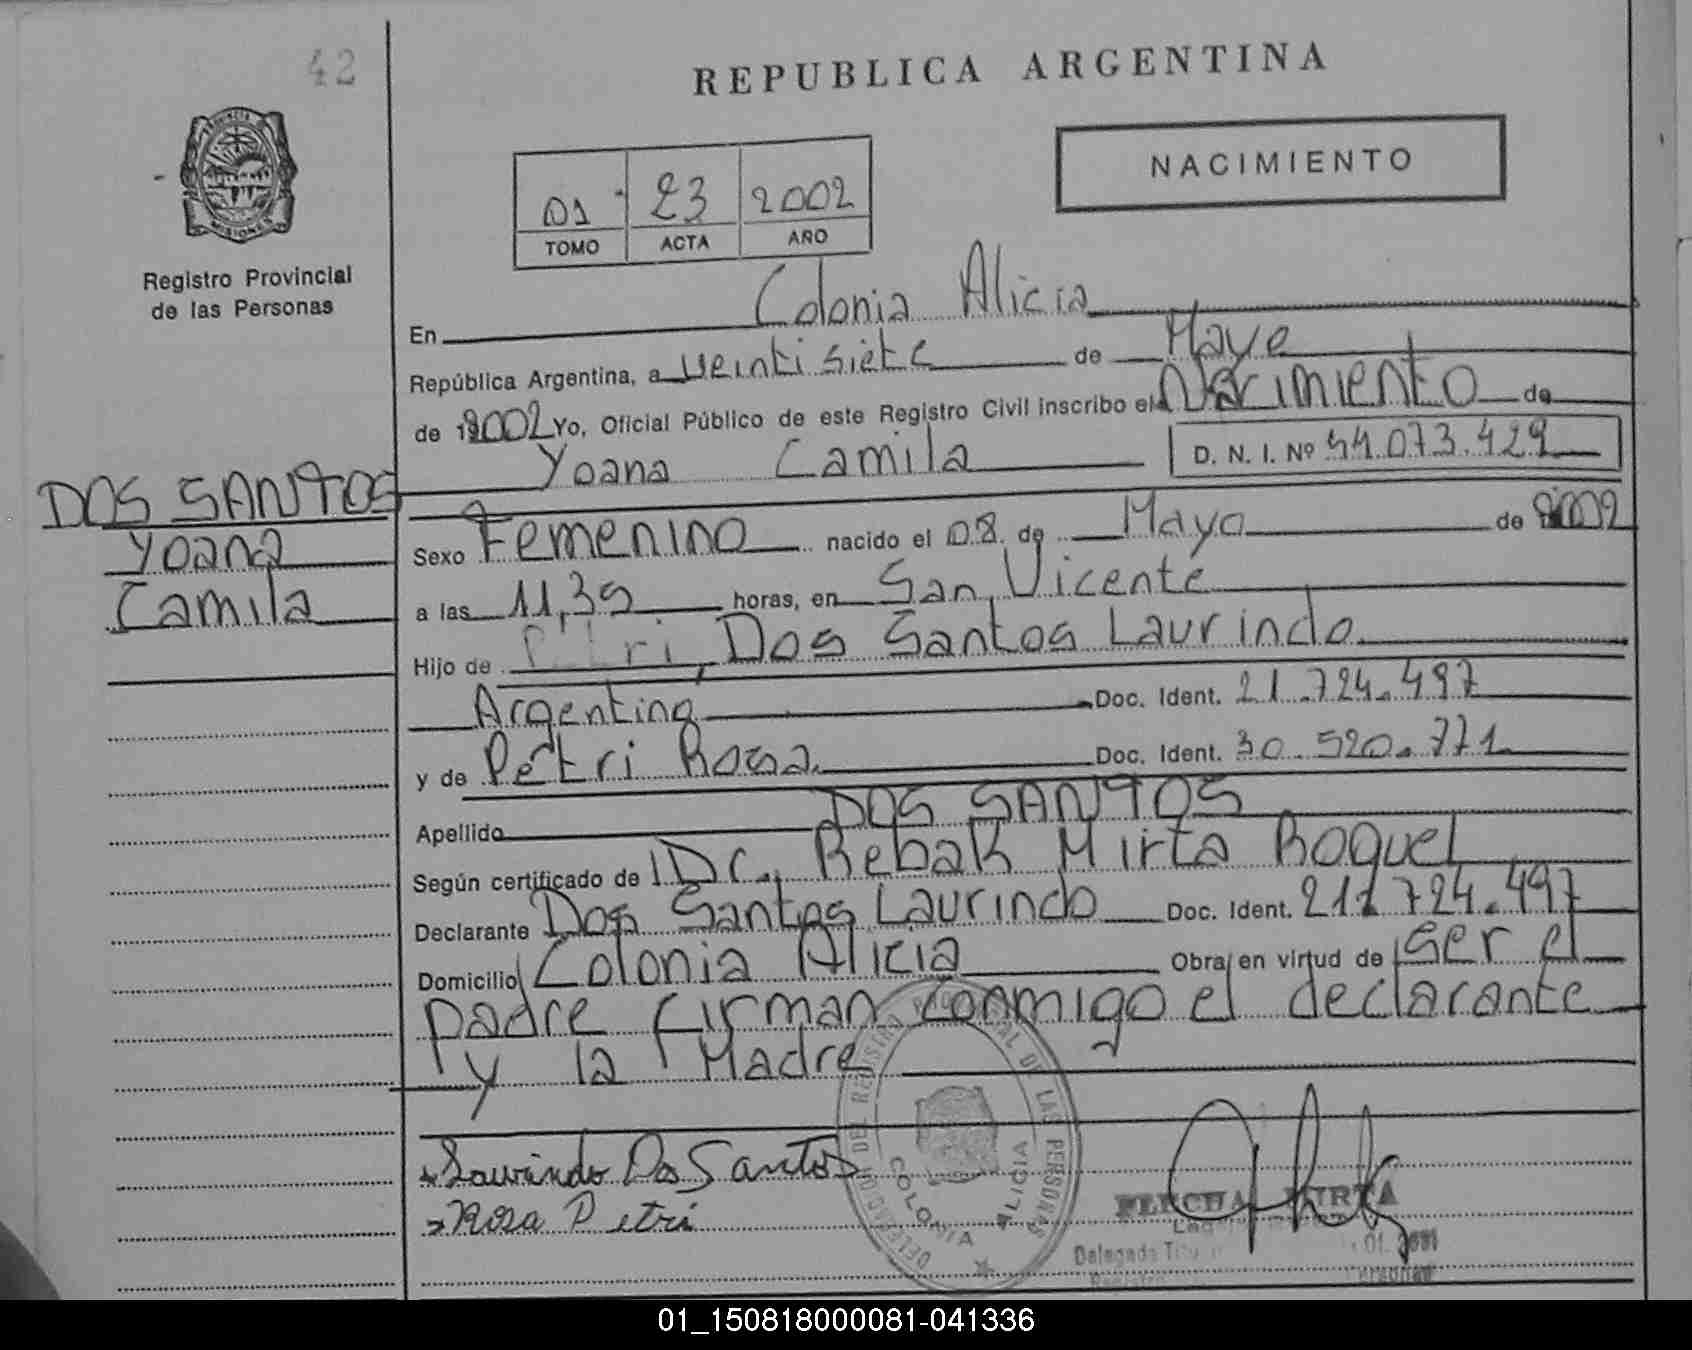 42
REPUBLICA ARGENTINA
NACIMIENTO
01 23 2002
TOMO ACTA AÑO
PROVINCIA DE MISIONES
Registro Provincial
de las Personas
En Colonia Alicia
República Argentina, a veinti siete de Mayo
de 2002 Yo, Oficial Público de este Registro Civil inscribo el Nacimiento de
Yoana Camila D. N. I. Nº 44.073.429
DOS SANTOS
Yoana
Camila
Sexo Femenino nacido el 08 de Mayo de 2002
a las 11,35 horas, en San Vicente
Hijo de Dos Santos Laurindo
Argentina Doc. Ident. 21.724.497
y de Petri Rosa Doc. Ident. 30.520.771
Apellido DOS SANTOS
Según certificado de Dr. Rebak Mirta Roquel
Declarante Dos Santos Laurindo Doc. Ident. 21.724.497
Domicilio Colonia Alicia Obra en virtud de ser el
padre firman conmigo el declarante
y la Madre
Laurindo Dos Santos
Rosa Petri
DELEGACION DEL REGISTRO PROVINCIAL DE LAS PERSONAS
COLONIA ALICIA
MIRTA
Delegada
01_150818000081-041336